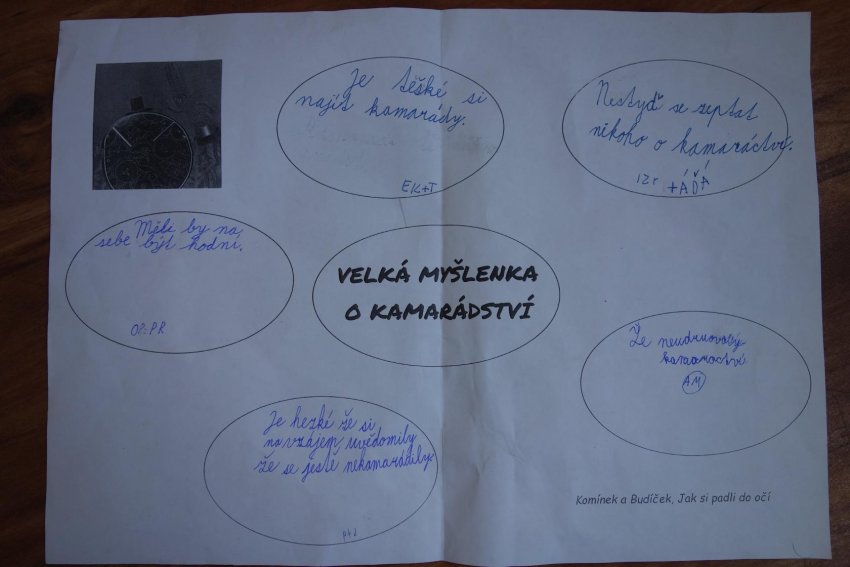 Je těžké si
najít kamarády.
EK+T
Nestyď se zeptat
nikoho o kamaráctví.
IZF +ÁĎÁ
Měli by na
sebe být hodní.
OP:PR
VELKÁ MYŠLENKA
O KAMARÁDSTVÍ
Že neudruovaly
kamaroctví
AM
Je hezké že si
navzájem uvědomily
že se ještě nekamarádily.
Komínek a Budíček, Jak si padli do očí